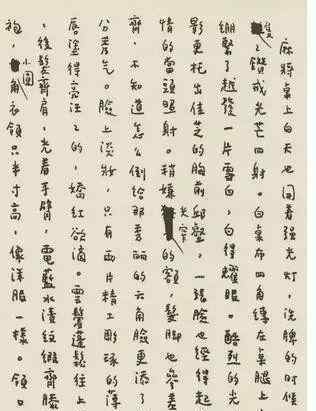 麻將桌上白天也開着強光燈，洗牌的時候
隻々鑽戒光芒四射。白桌布四角縛在桌腿上
繃緊了越發一片雪白，白得耀眼。酷烈的光
影更托出佳芝的胸前邱壑，一張臉也經得起
情的當頭照射。稍嫌尖窄的額，髮腳也參差
齊，不知道怎么倒給那秀麗的六角臉更添了
分秀气。臉上淡妝，只有兩片精工彫琢的薄
唇塗得亮汪々的，嬌紅欲滴。雲鬢蓬鬆往上
，後髮齊肩，光着手臂，電藍水漬紋緞齊膝
袍，小圓角衣領只半寸高，像洋服一樣。領口